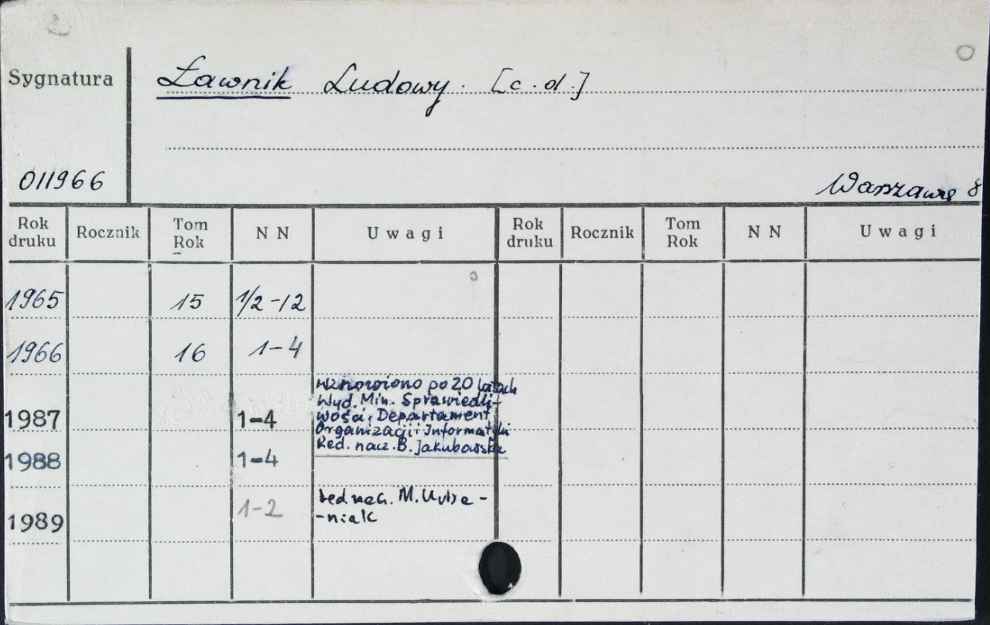 Sygnatura Ławnik Ludowy. [c.d.]
011966 Warszawa 8
Rok druku Rocznik Tom Rok N N Uwagi Rok druku Rocznik Tom Rok N N Uwagi
1965 15 1/2-12
1966 16 1-4
Wznowiono po 20 latach
Wyd. Min. Sprawiedli-
1987 1-4 wości, Departament
Organizacji i Informatyki
Red. nacz. B. Jakubowska
1988 1-4
1989 1-2 Red nacz. M.
-niak